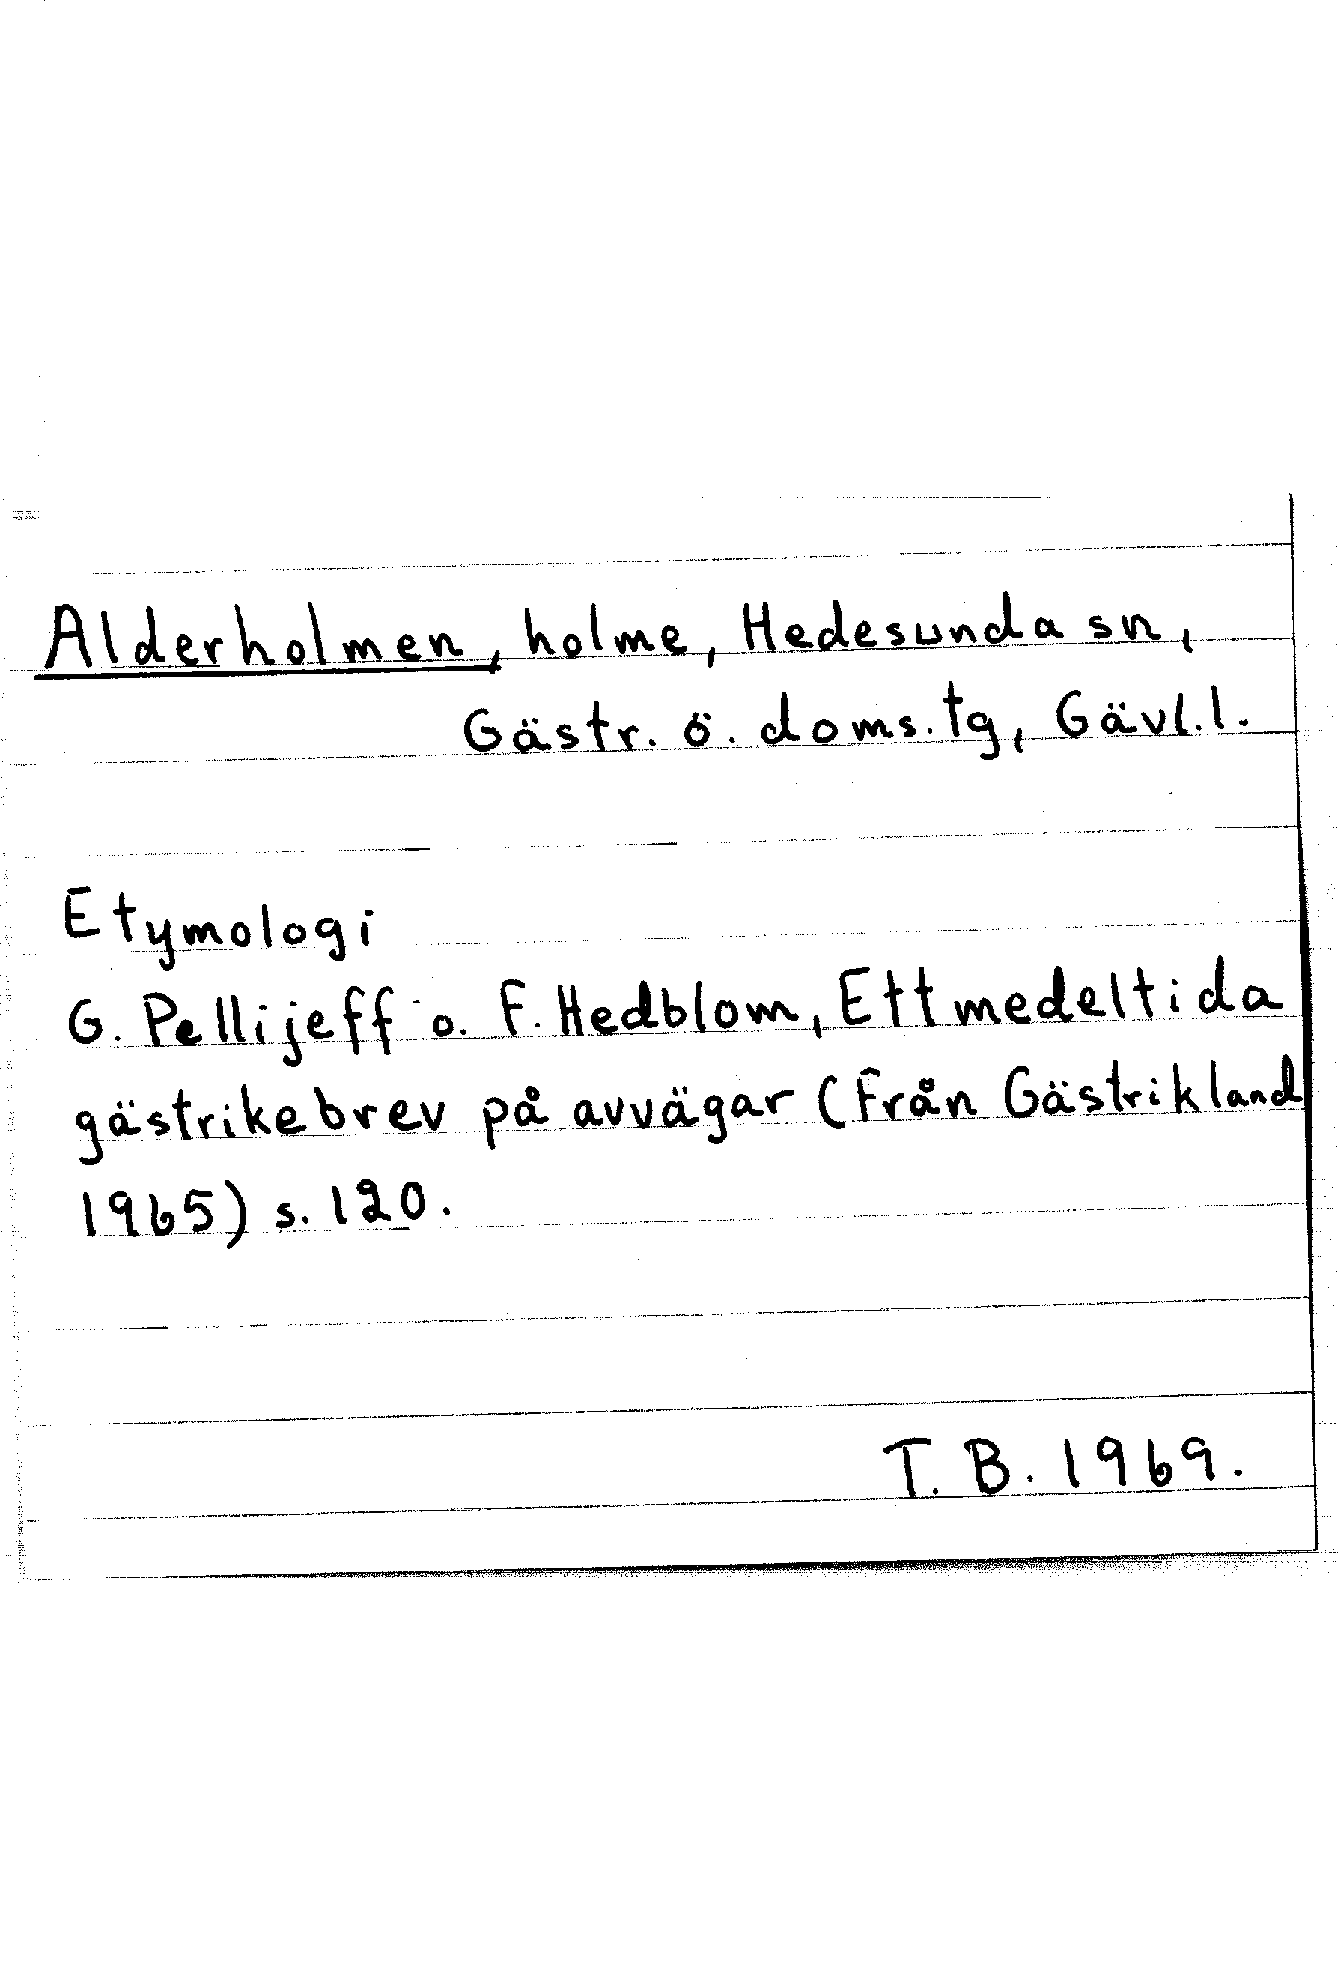 Alderholmen, holme, Hedesunda sn,
Gästr. ö. doms.tg, Gävl.l.
Etymologi
G. Pellijeff o. F. Hedblom, Ett medeltida
gästrikebrev på avvägar (Från Gästrikland
1965) s. 120.
T. B. 1969.